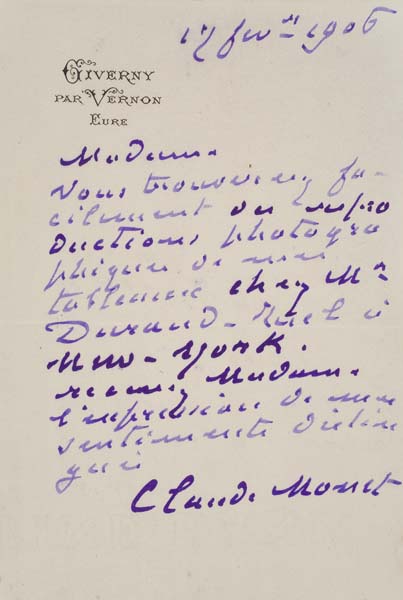 17 fevr 1906
GIVERNY
PAR VERNON
EURE
Madame
Vous trouverez fa-
cilement des repro
ductions photogra
phiques de mes
tableaux chez Mr
Durand-Ruel à
New-York.
recevez Madame
l'expression de mes
sentiments distin
gués
Claude Monet